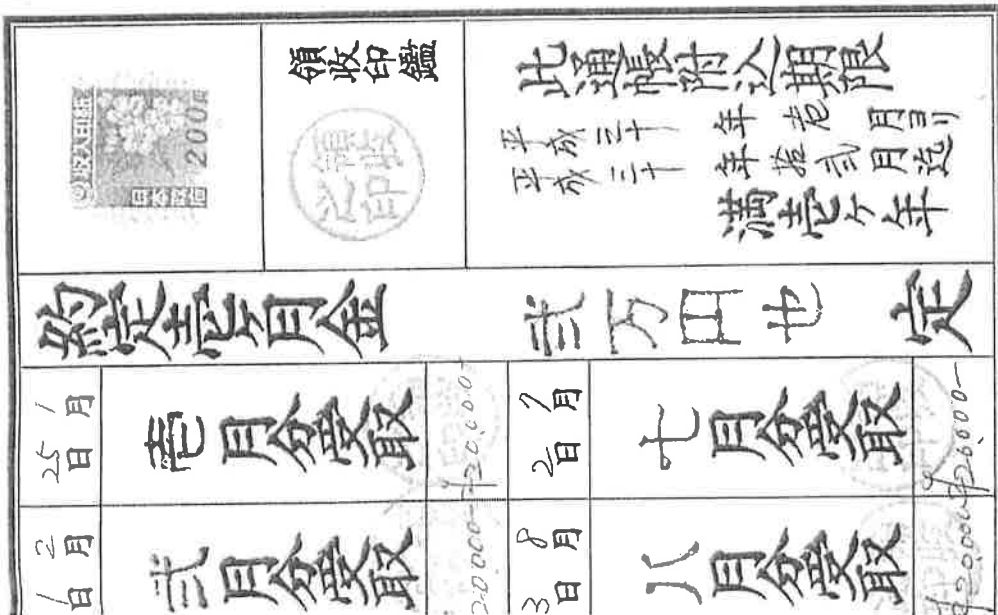 此通帳附込期限
平成三十年壱月ヨリ
平成三十年拾弐月迄
満壱ケ年
領収印鑑
領収之印
収入印紙
200円
日本政府
約定壱ケ月金 弐万円也 定
1月25日
壱月分受取
¥20,000-
7月2日
七月分受取
¥20,000-
2月1日
弐月分受取
¥20,000-
8月3日
八月分受取
¥20,000-